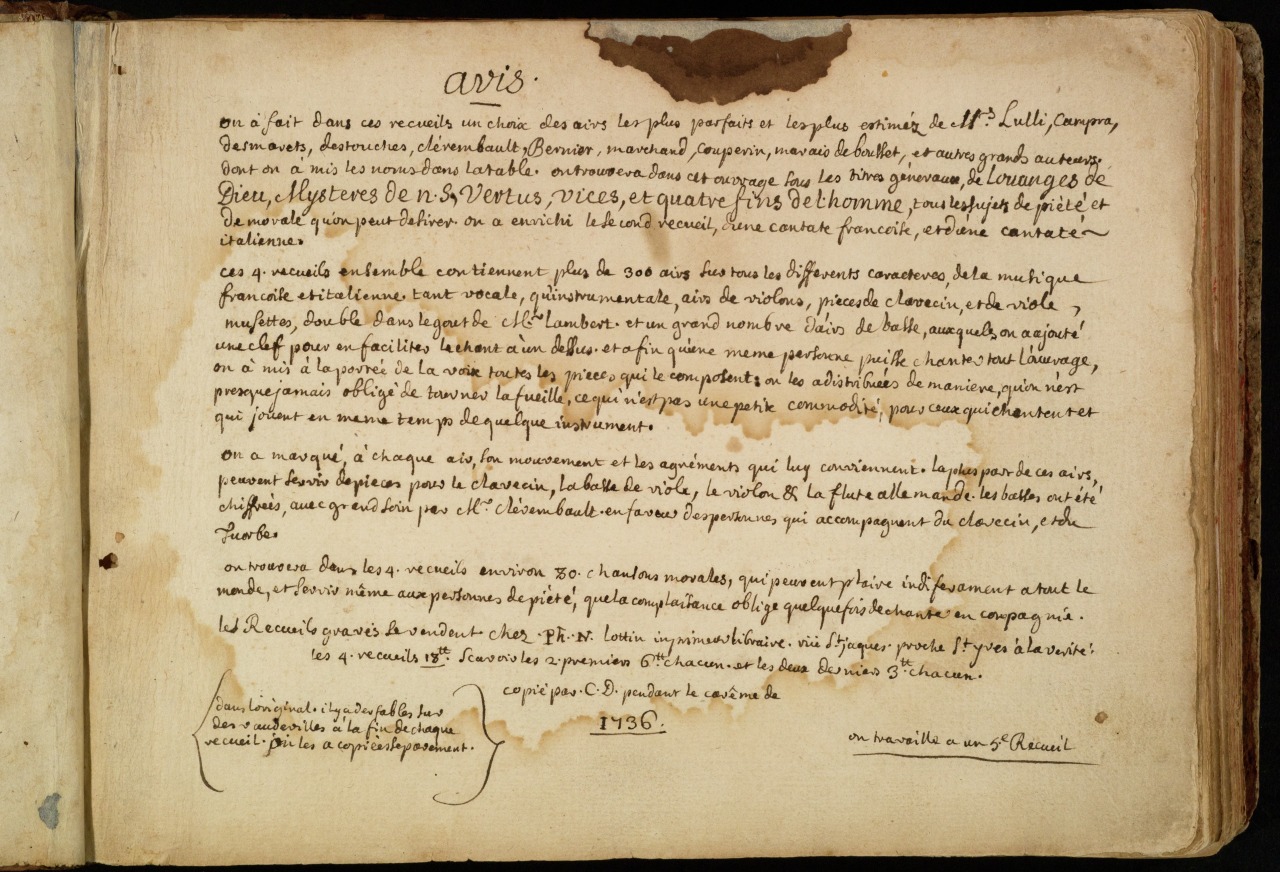 avis.
on à fait dans ces recueils un choix des airs les plus parfaits et les plus estiméz de M.rs Lulli, Campra,
desmarets, destouches, clérembault, Bernier, marchand, couperin, marais de bousset, et autres grands auteurs.
dont on à mis les noms dans la table. on trouvera dans cet ouvrage sous les titres géneraux, de louanges de
Dieu, Mysteres de n. S, Vertus, vices, et quatre fins de l'homme, tous les sujets de piété et
de morale qu'on peut desirer. on a enrichi le second recueil, d'une cantate francoise, et d'une cantate
italienne.
ces 4. recueils ensemble contiennent plus de 300 airs sur tous les differents caracteres, de la musique
francoise et italienne. tant vocale, qu'instrumentale, airs de violons, pieces de clavecin, et de viole,
musettes, double dans le gout de M.r Lambert. et un grand nombre d'airs de basse, auxquels on a ajouté
une clef pour en faciliter le chant à un dessus. et afin qu'une meme personne puisse chanter tout l'ouvrage,
on à mis à la portée de la voix toutes les pieces qui le composent: on les a distribuées de maniere, qu'on n'est
presque jamais obligé de tourner la fueille, ce qui n'est pas une petite commodité, pour ceux qui chantent et
qui jouent en meme temps de quelque instrument.
on a marqué, à chaque air, son mouvement et les agréments qui luy conviennent. la plus part de ces airs,
peuvent servir de pieces pour le clavecin, la basse de viole, le violon & la flute allemande. les basses ont été
chiffrées, avec grand soin par M.r clérembault. en faveur des personnes qui accompagnent du clavecin, et du
Tuorbe.
on trouvera dans les 4. recueils environ 80. chansons morales, qui peuvent plaire indiferament a tout le
monde, et servir même aux personnes de piété, que la complaisance oblige quelquefois de chanter en compagnie.
les Recueils gravés se vendent chez Ph. N. Lottin imprimeur libraire. rüe St. jaques. proche St. yves à la verité.
les 4. recueils 18.tt scavoir les 2. premiers 6.tt chacun. et les deux derniers 3.tt chacun.
copié par C. D. pendant le carême de
1736.
dans l'original. il y a des fables sur
des vaudevilles à la fin de chaque
recueil. je les a copiées séparement.
on travaille a un 5.e Recueil